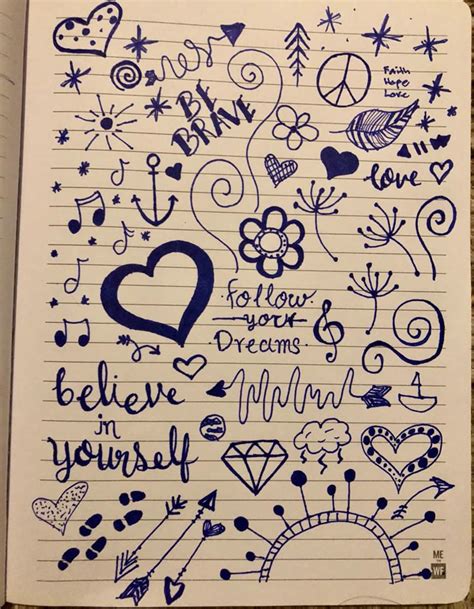 BE
BRAVE
Faith
Hope
Love
love
follow
your
Dreams
believe
in
yourself
ME
WF